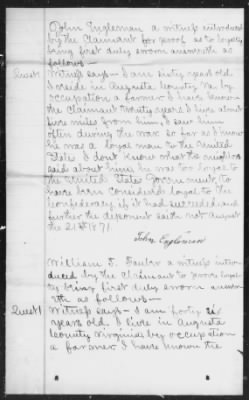 John Engleman a witness introduced
by the Claimant for proof as to loyalty
being first duly sworn answereth as
follows—
Quest 1 Witness says— I am sixty years old
I reside in Augusta County Va by
occupation a farmer I have known
the Claimant twenty years I live about
five miles from him I saw him
often during the war so far as I know
he was a loyal man to the United
States I dont know what the neighbors
said about him he was too loyal to
the United States Government to
have been considered loyal to the
Confederacy if it had succeeded and
further the deponent saith not August
the 21st 1871.
John Engleman
William F. a witness intro-
duced by the Claimant to prove loyal-
ty being first duly sworn answer-
eth as follows—
Quest 1 Witness says— I am forty six
years old. I live in Augusta
County Virginia by occupation
a farmer I have known the